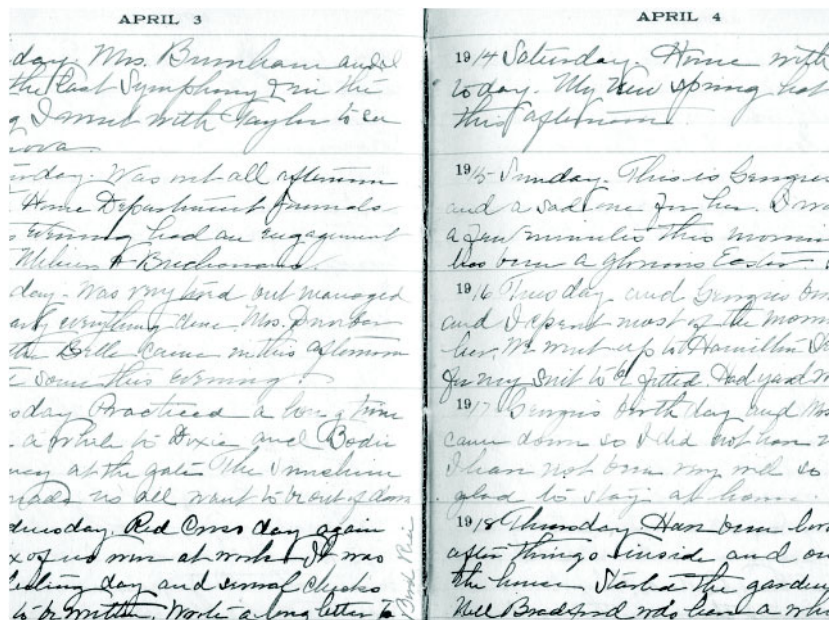 APRIL 3
day. Mrs. Burnham and I
the last Symphony & in the
I went with Taylor to
day. Was out all afternoon
Home Department Journals
evening had an engagement
& Buchanans.
day. Was very tired but managed
everything done. Mrs. Dunbar
Belle came in this afternoon
some this evening.
day Practiced a long time
a while to Dixie and Bodie
at the gate The Sunshine
made us all want to be out of doors
Wednesday Red Cross day again
of us were at work. It was
day and several checks
to be written. Wrote a long letter to
APRIL 4
1914 Saturday. Home with
today. My new spring hat
this afternoon.
1915 Sunday. This is Georgies
and a sad one for her. I
a few minutes this morning
has been a glorious Easter.
1916 Tuesday and Georgies
and I spent most of the morn
her. We went up to Hamilton
for my suit to be fitted. Had
1917 Georgies birthday and
came down so I did not have
I have not been very well so
glad to stay at home.
1918 Thursday Have been
after things inside and
the house. Started the garden
Nell Bradford was here a